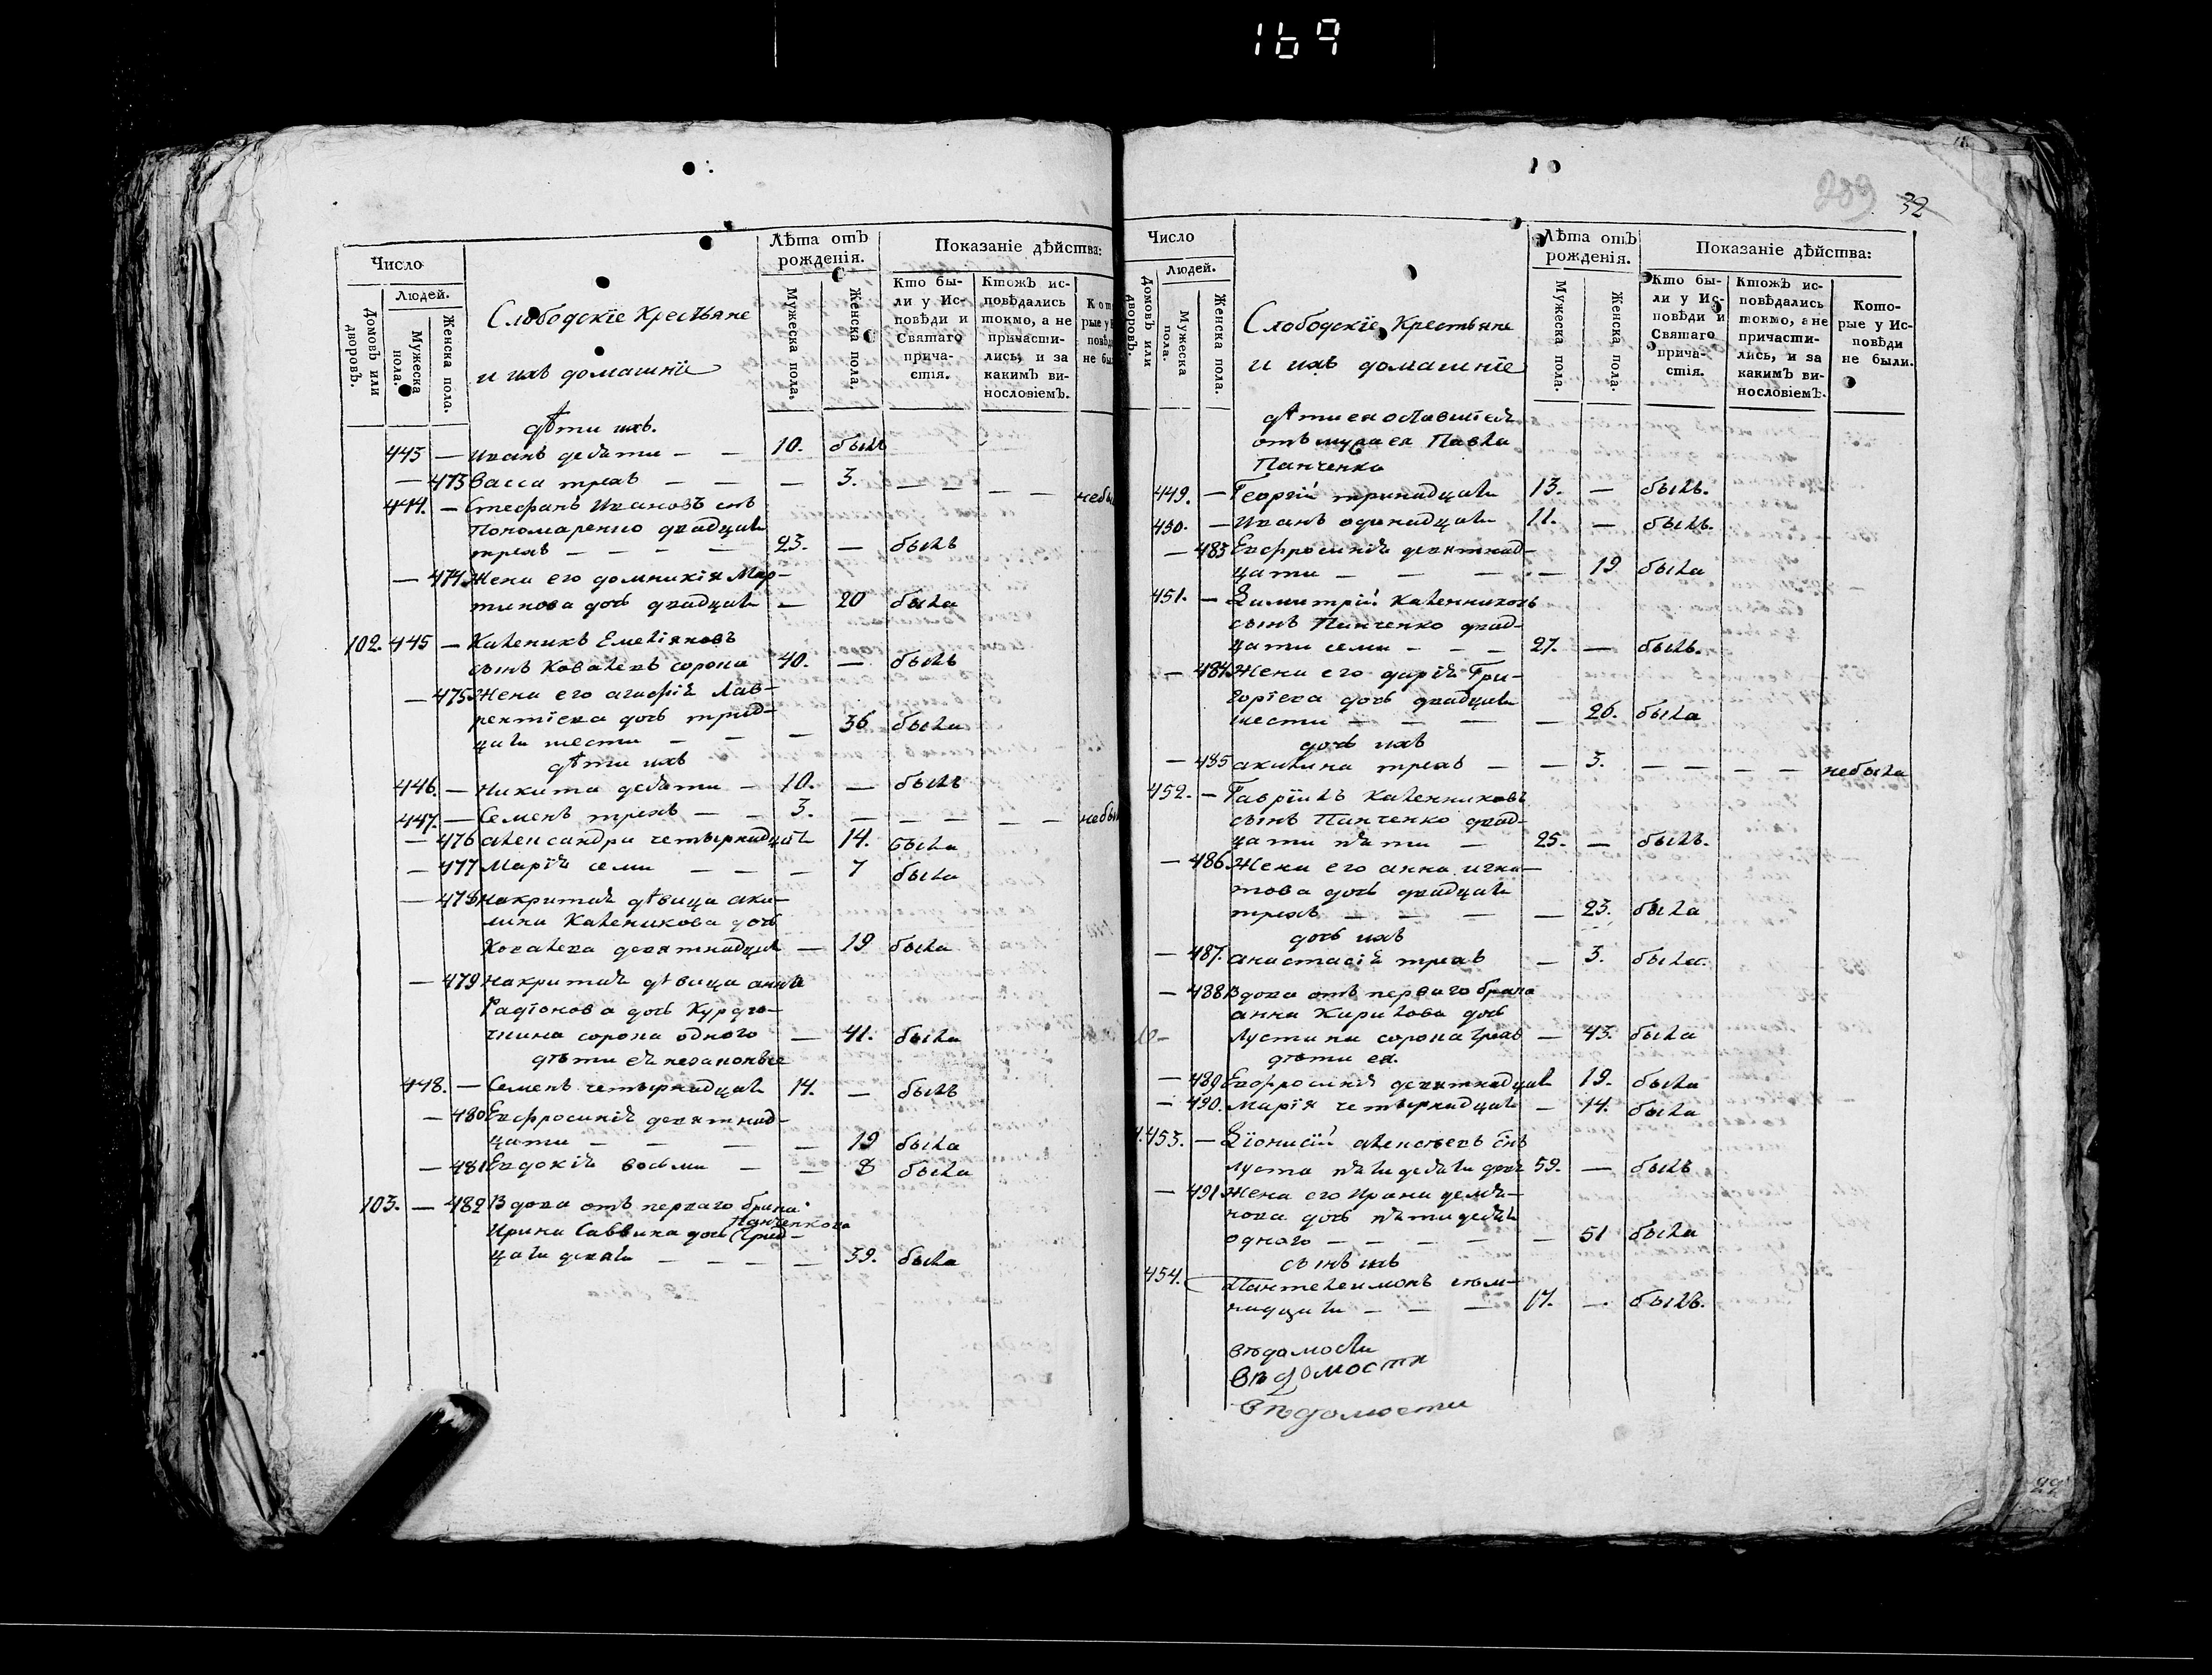 169
Число
Людей.
Домовъ или дворовъ.
Мужеска пола.
Женска пола.
Слободскіе Крестьяне
и ихъ домашніе
Лѣта отъ рожденія.
Мужеска пола.
Женска пола.
Показаніе дѣйства:
Кто были у Исповѣди и Святаго причастія.
Ктожъ исповѣдались токмо, а не причастились, и за какимъ винословіемъ.
дѣти ихъ.
443 — Иванъ десяти — — 10. былъ
— 473 Васса трехъ — — — 3. — — — — небы
444. — Стефанъ Ивановъ снъ
Пономаренко двадцати
трехъ — — — — 23. — былъ
— 474 Жена его домникія Мар-
тинова дочь двадцати — 20 была
102. 445 — Каленикъ Емеліяновъ
сынъ Ковалевъ сорока 40. — былъ
— 475 Жена его агафія Лав-
рентіева дочь трид-
цати шести — — — 36 была
дѣти ихъ
446. — Никита десяти — 10. — былъ
447. — Семенъ трехъ — — 3. — — — — — небы
— 476 александра четырнадцати 14. была
— 477 Марія семи — — — 7 была
— 478 накритая дѣвица аки-
лина Каленикова дочь
Ковалева девятнадцати — 19 была
— 479 накритая дѣвица анна
Радіонова дочь
сорока одного — 41. была
дѣти ея незаконніе
448. — Семенъ четырнадцати 14. — былъ
— 480 Евфросинія девятнад-
цати — — — — 19 была
— 481 Евдокія восьми — — 8 была
103. — 482 Вдова отъ перваго брака
Панченкова
Ирина Саввина дочь трид-
цати девяти — — — — 39. была
289 32
Число
Людей.
Домовъ или дворовъ.
Мужеска пола.
Женска пола.
Слободскіе Крестьяне
и ихъ домашніе
Лѣта отъ рожденія.
Мужеска пола.
Женска пола.
Показаніе дѣйства:
Кто были у Исповѣди и Святаго причастія.
Ктожъ исповѣдались токмо, а не причастились, и за какимъ винословіемъ.
Которые у Исповѣди не были.
дѣти ея оставшіеся
отъ мужа ея Павла
Панченка
449. — Георгій тринадцати 13. — былъ.
450. — Иванъ одинадцати 11. — былъ.
— 483 Евфросинія девятнад-
цати — — — — 19 была
451. — Димитрій Каленниковъ
сынъ Панченко двад-
цати семи — — — 27. — былъ.
— 484 Жена его дарія Гри-
горіева дочь двадцати
шести — — — — 26. была
дочь ихъ
— 485 акилина трехъ — — 3. — — — — небыла
452. — Гавріилъ Каленниковъ
сынъ Панченко двад-
цати пяти — 25. — былъ.
— 486. Жена его анна игна-
това дочь двадцати
трехъ — — — — 23. была
дочь ихъ
— 487. анастасія трехъ — 3. была.
— 488 Вдова отъ перваго брака
анна Кирилова дочь
Лустина сорока трехъ — 43. была
дѣти ея.
— 489 Евфросинія девятнадцати 19. была
— 490. Марія четырнадцати — 14. была
453. — Діонисій алексѣевъ снъ
Луста пятидесяти девяти 59. — былъ
— 491 Жена его Ирина демя-
нова дочь пятидесяти
одного — — — — — 51 была
сынъ ихъ
454. Пантелеимонъ сѣм-
надцати — — — 17. — былъ.
вѣдомости
вѣдомости
вѣдомости